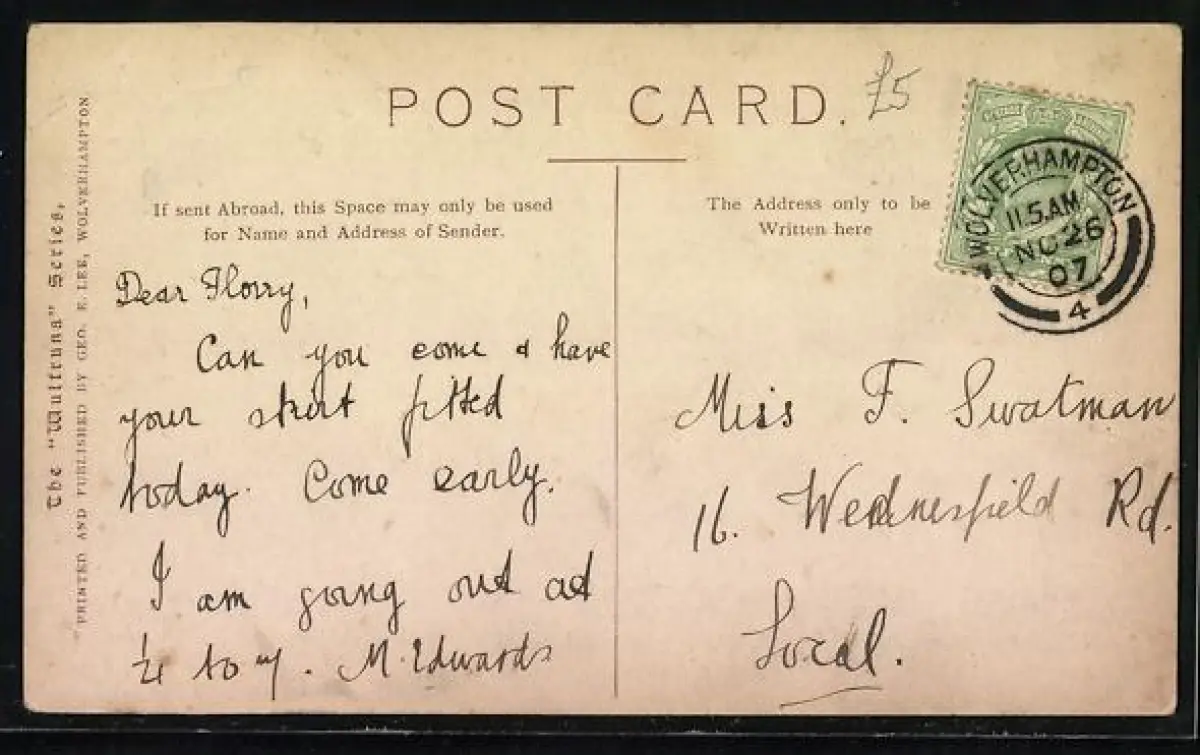 POST CARD.
£5
WOLVERHAMPTON
11.5 AM
NO 26
07
4
If sent Abroad, this Space may only be used
for Name and Address of Sender.
The Address only to be
Written here
The "Wulfruna" Series,
PRINTED AND PUBLISHED BY GEO. E. LEE, WOLVERHAMPTON
Dear Florry,
Can you come & have
your skirt fitted
today. Come early.
I am going out at
¼ to 7. M. Edwards
Miss F. Swatman
16. Wednesfield Rd.
Local.